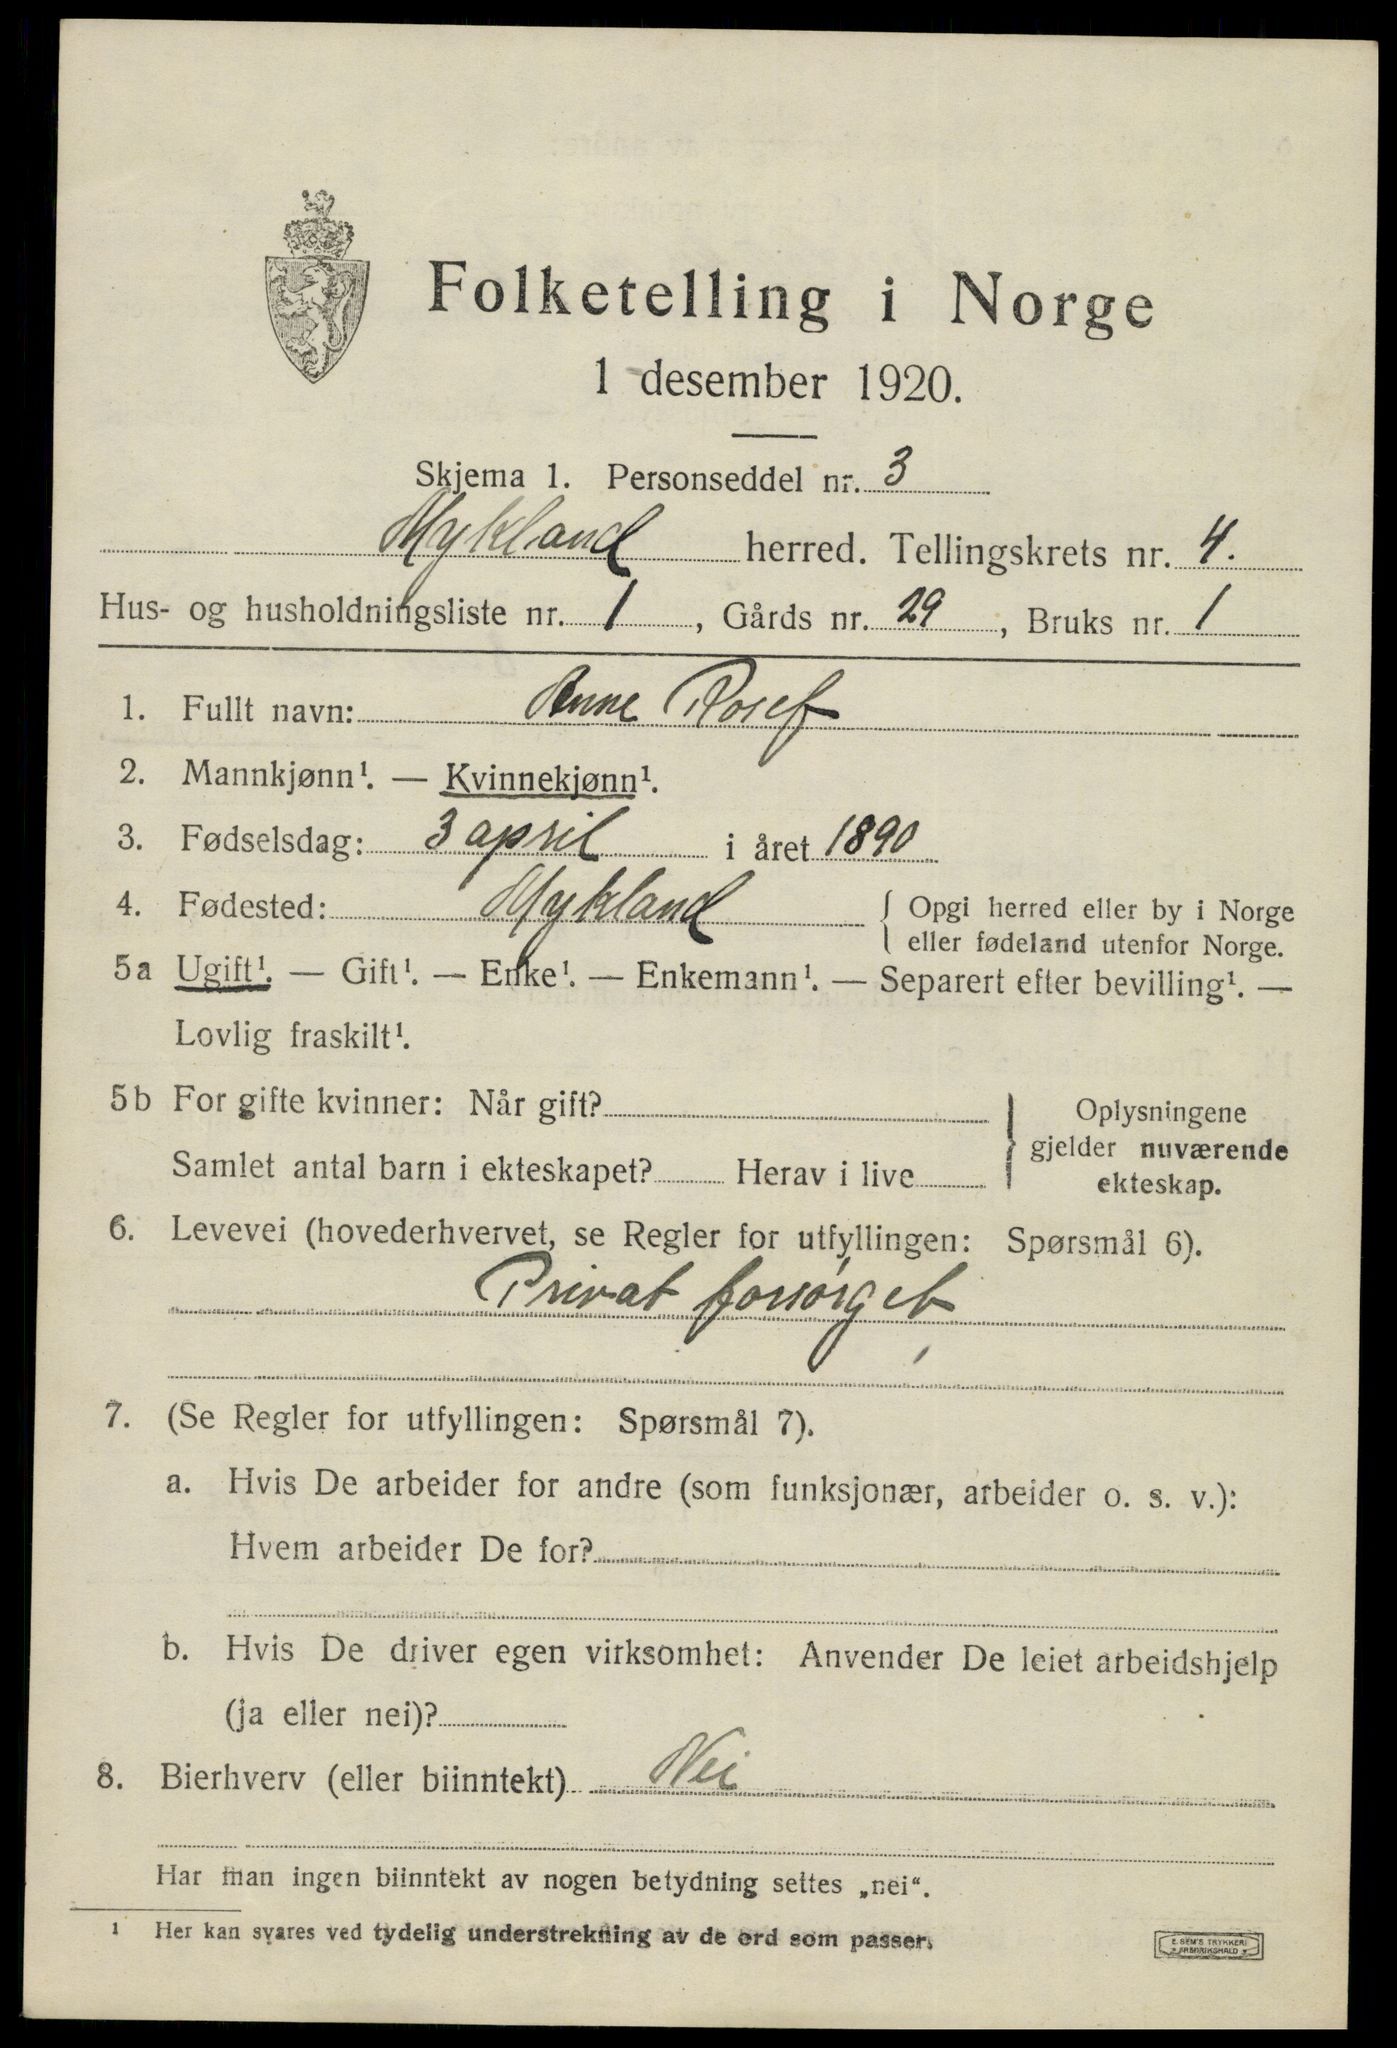 Folketelling i Norge
1 desember 1920.
Skjema 1. Personseddel nr. 3
Mykland herred. Tellingskrets nr. 4.
Hus- og husholdningsliste nr. 1, Gårds nr. 29, Bruks nr. 1
1. Fullt navn: Anne Rosef
2. Mannkjønn¹. — Kvinnekjønn¹.
3. Fødselsdag: 3 april i året 1890
4. Fødested: Mykland { Opgi herred eller by i Norge
eller fødeland utenfor Norge.
5a Ugift¹. — Gift¹. — Enke¹. — Enkemann¹. — Separert efter bevilling¹. —
Lovlig fraskilt¹.
5b For gifte kvinner: Når gift? } Oplysningene
gjelder nuværende
Samlet antal barn i ekteskapet? Herav i live
ekteskap.
6. Levevei (hovederhvervet, se Regler for utfyllingen: Spørsmål 6).
Privat forsørget
7. (Se Regler for utfyllingen: Spørsmål 7).
a. Hvis De arbeider for andre (som funksjonær, arbeider o. s. v.):
Hvem arbeider De for?
b. Hvis De driver egen virksomhet: Anvender De leiet arbeidshjelp
(ja eller nei)?
8. Bierhverv (eller biinntekt) Nei
Har man ingen biinntekt av nogen betydning settes „nei“.
¹ Her kan svares ved tydelig understrekning av de ord som passer.
E. SEM'S TRYKKERI
FREDRIKSHALD